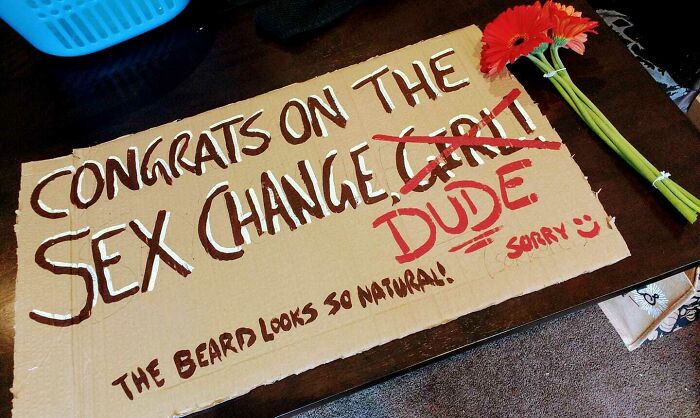 CONGRATS ON THE
SEX CHANGE, GIRL!
DUDE
SORRY
THE BEARD LOOKS SO NATURAL!